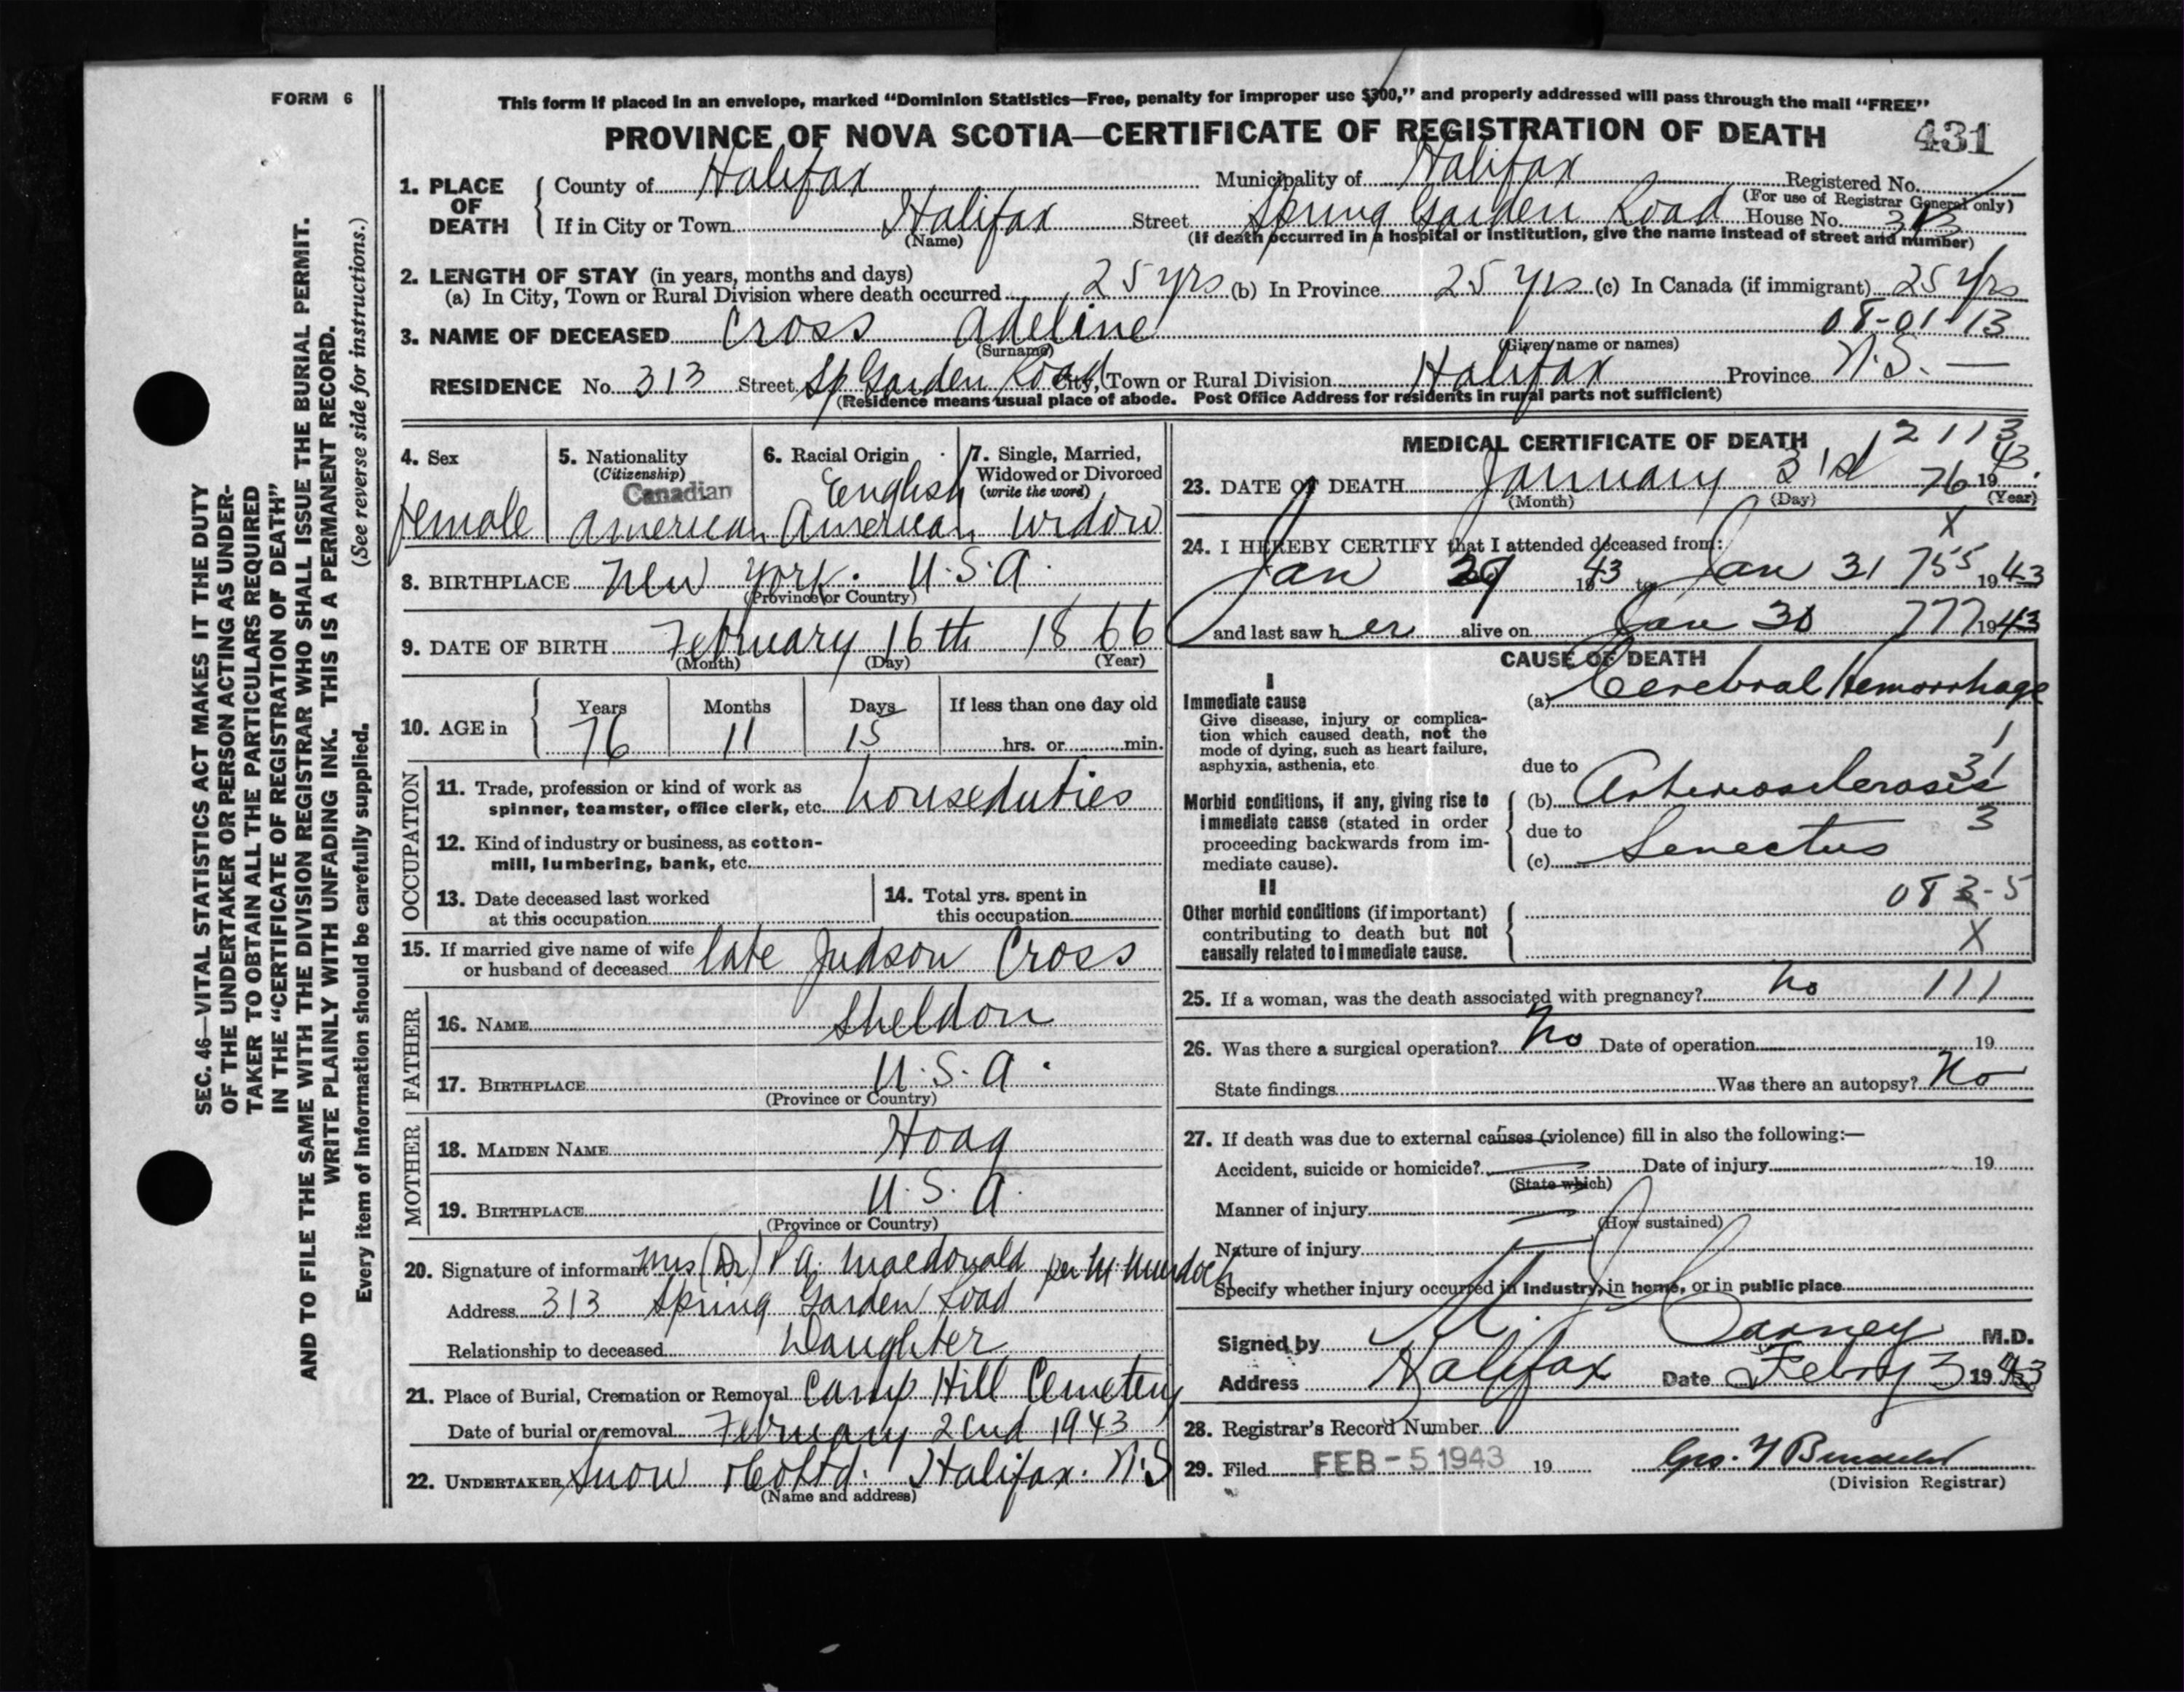 FORM 6
This form if placed in an envelope, marked “Dominion Statistics—Free, penalty for improper use $300,” and properly addressed will pass through the mail “FREE”
PROVINCE OF NOVA SCOTIA—CERTIFICATE OF REGISTRATION OF DEATH 431
1. PLACE OF DEATH
County of Halifax Municipality of Halifax Registered No.
(For use of Registrar General only)
If in City or Town Halifax Street Spring Garden Road House No. 313
(Name) (If death occurred in a hospital or institution, give the name instead of street and number)
2. LENGTH OF STAY (in years, months and days)
(a) In City, Town or Rural Division where death occurred 25 yrs (b) In Province 25 yrs (c) In Canada (if immigrant) 25 yrs
3. NAME OF DECEASED Cross Adeline 08-01-13
(Surname) (Given name or names)
RESIDENCE No. 313 Street Sp Garden Road City, Town or Rural Division Halifax Province N.S. —
(Residence means usual place of abode. Post Office Address for residents in rural parts not sufficient)
4. Sex
female
5. Nationality
(Citizenship)
Canadian
American
6. Racial Origin
English
American
7. Single, Married,
Widowed or Divorced
(write the word)
widow
8. BIRTHPLACE New York. U.S.A.
(Province or Country)
9. DATE OF BIRTH February 16th 1866
(Month) (Day) (Year)
10. AGE in
Years Months Days If less than one day old
76 11 15 hrs. or min.
OCCUPATION
11. Trade, profession or kind of work as
spinner, teamster, office clerk, etc. houseduties
12. Kind of industry or business, as cotton-
mill, lumbering, bank, etc.
13. Date deceased last worked
at this occupation
14. Total yrs. spent in
this occupation
15. If married give name of wife
or husband of deceased late Judson Cross
FATHER
16. NAME Sheldon
17. BIRTHPLACE U.S.A.
(Province or Country)
MOTHER
18. MAIDEN NAME Hoag
19. BIRTHPLACE U.S.A.
(Province or Country)
20. Signature of informant Mrs (Dr) P.A. Macdonald per M. Murdoch
Address 313 Spring Garden Road
Relationship to deceased Daughter
21. Place of Burial, Cremation or Removal Camp Hill Cemetery
Date of burial or removal February 2nd 1943
22. UNDERTAKER Snow & Co Ltd. Halifax. N.S
(Name and address)
MEDICAL CERTIFICATE OF DEATH 2113
23. DATE OF DEATH January 31st 76 1943.
(Month) (Day) (Year)
X
24. I HEREBY CERTIFY that I attended deceased from:
Jan 29 1943 to Jan 31 755 1943
and last saw her alive on Jan 30 777 1943
CAUSE OF DEATH
I
Immediate cause
Give disease, injury or complica-
tion which caused death, not the
mode of dying, such as heart failure,
asphyxia, asthenia, etc
(a) Cerebral Hemorrhage
1
due to 31
Morbid conditions, if any, giving rise to
immediate cause (stated in order
proceeding backwards from im-
mediate cause).
(b) Arteriosclerosis
due to 3
(c) Senectus
II
Other morbid conditions (if important)
contributing to death but not
causally related to immediate cause.
083-5
X
25. If a woman, was the death associated with pregnancy? No 111
26. Was there a surgical operation? No Date of operation 19
State findings Was there an autopsy? No
27. If death was due to external causes (violence) fill in also the following:—
Accident, suicide or homicide? Date of injury 19
(State which)
Manner of injury
(How sustained)
Nature of injury
Specify whether injury occurred in industry, in home, or in public place
Signed by Carney M.D.
Address Halifax Date Febry 3 1943
28. Registrar's Record Number
29. Filed FEB - 5 1943 19
(Division Registrar)
SEC. 46—VITAL STATISTICS ACT MAKES IT THE DUTY
OF THE UNDERTAKER OR PERSON ACTING AS UNDER-
TAKER TO OBTAIN ALL THE PARTICULARS REQUIRED
IN THE “CERTIFICATE OF REGISTRATION OF DEATH”
AND TO FILE THE SAME WITH THE DIVISION REGISTRAR WHO SHALL ISSUE THE BURIAL PERMIT.
WRITE PLAINLY WITH UNFADING INK. THIS IS A PERMANENT RECORD.
Every item of information should be carefully supplied. (See reverse side for instructions.)